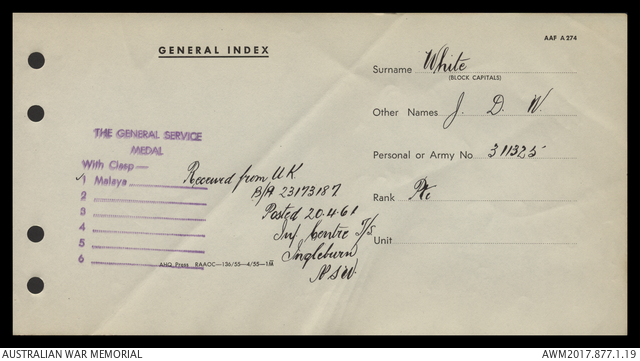 AAF A274
GENERAL INDEX
Surname White
(BLOCK CAPITALS)
Other Names J. D. W.
THE GENERAL SERVICE
MEDAL
With Clasp—
1 Malaya
2
3
4
5
6
Personal or Army No 311325
Rank Pte
Unit
Received from UK
B/A 23173187
Posted 20.4.61
Inf Centre T/S
Ingleburn
NSW
AHQ Press RAAOC—136/55—4/55—1M
AUSTRALIAN WAR MEMORIAL
AWM2017.877.1.19